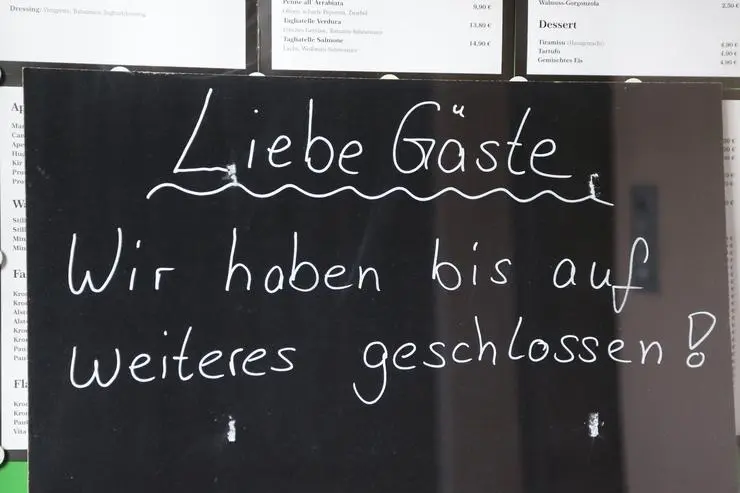 Dressing: Vinegrett, Balsamico, Joghurtdressing
Penne all' Arrabiata 9,90 €
Tagliatelle Verdura 13,80 €
Tagliatelle Salmone 14,90 €
Walnuss-Gorgonzola 2,50 €
Dessert
Tiramisu (Hausgemacht) 4,90 €
Tartufo 4,90 €
Gemischtes Eis 4,90 €
Liebe Gäste
Wir haben bis auf
weiteres geschlossen!